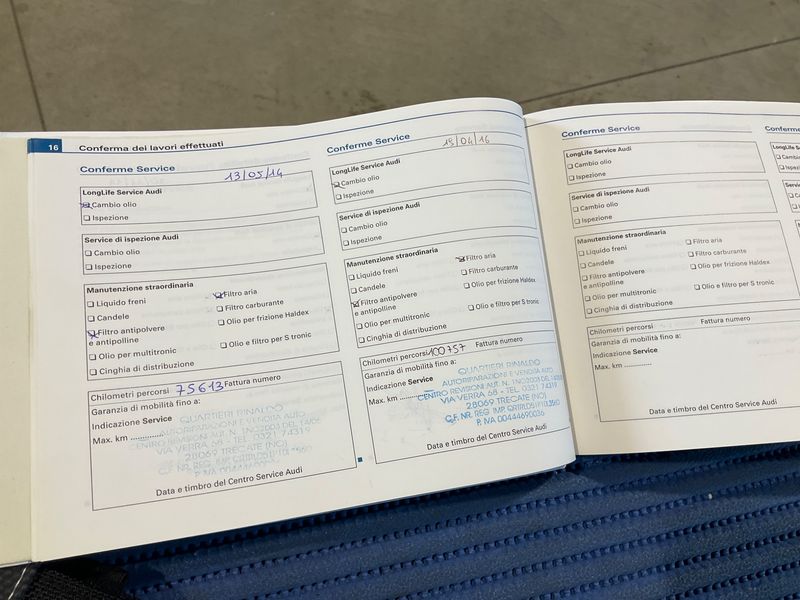 16 Conferma dei lavori effettuati
Conferme Service
13/05/14
LongLife Service Audi
Cambio olio
Ispezione
Service di ispezione Audi
Cambio olio
Ispezione
Manutenzione straordinaria
Liquido freni
Filtro aria
Candele
Filtro carburante
Filtro antipolvere
e antipolline
Olio per frizione Haldex
Olio per multitronic
Olio e filtro per S tronic
Cinghia di distribuzione
Chilometri percorsi 75613 Fattura numero
Garanzia di mobilità fino a:
Indicazione Service
Max. km
QUARTIERI RINALDO
AUTORIPARAZIONI E VENDITA AUTO
CENTRO REVISIONI AUT. N.
VIA VERRA 68 - TEL. 0321 74319
28069 TRECATE (NO)
P. IVA 00444690036
Data e timbro del Centro Service Audi
Conferme Service
LongLife Service Audi
Cambio olio
Ispezione
Service di ispezione Audi
Cambio olio
Ispezione
Manutenzione straordinaria
Liquido freni
Filtro aria
Candele
Filtro carburante
Filtro antipolvere
e antipolline
Olio per frizione Haldex
Olio per multitronic
Olio e filtro per S tronic
Cinghia di distribuzione
Chilometri percorsi 100757 Fattura numero
Garanzia di mobilità fino a:
Indicazione Service
Max. km
QUARTIERI RINALDO
AUTORIPARAZIONI E VENDITA AUTO
CENTRO REVISIONI AUT. N.
VIA VERRA 68 - TEL. 0321 74319
28069 TRECATE (NO)
P. IVA 00444690036
Data e timbro del Centro Service Audi
Conferme Service
LongLife Service Audi
Cambio olio
Ispezione
Service di ispezione Audi
Cambio olio
Ispezione
Manutenzione straordinaria
Liquido freni
Filtro aria
Candele
Filtro carburante
Filtro antipolvere
e antipolline
Olio per frizione Haldex
Olio per multitronic
Olio e filtro per S tronic
Cinghia di distribuzione
Chilometri percorsi Fattura numero
Garanzia di mobilità fino a:
Indicazione Service
Max. km
Data e timbro del Centro Service Audi